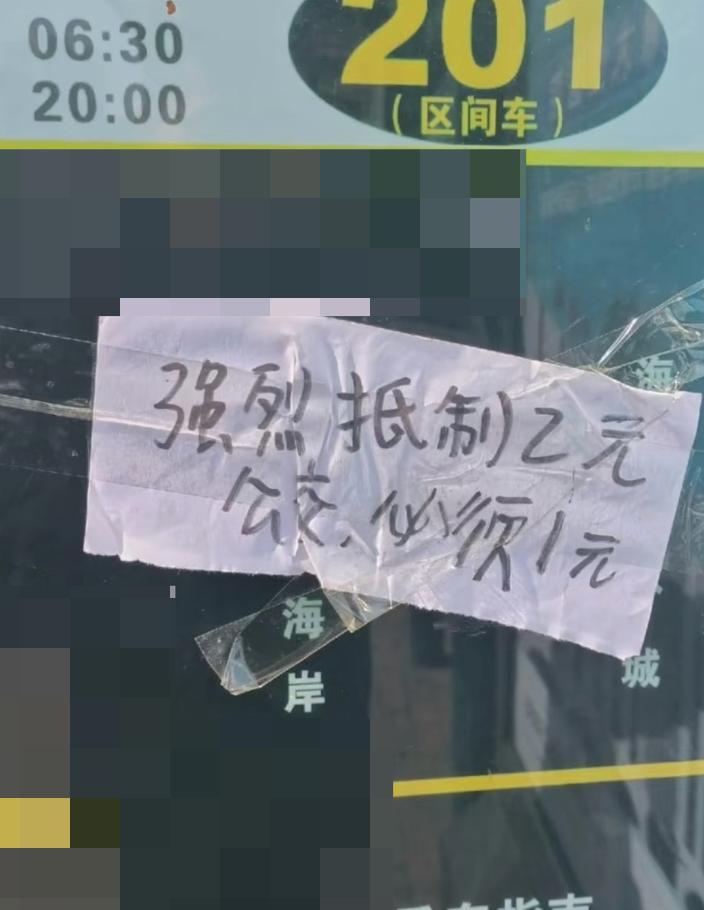 06:30
20:00
201
（区间车）
强烈抵制2元
公交.必须1元
海
海岸
城